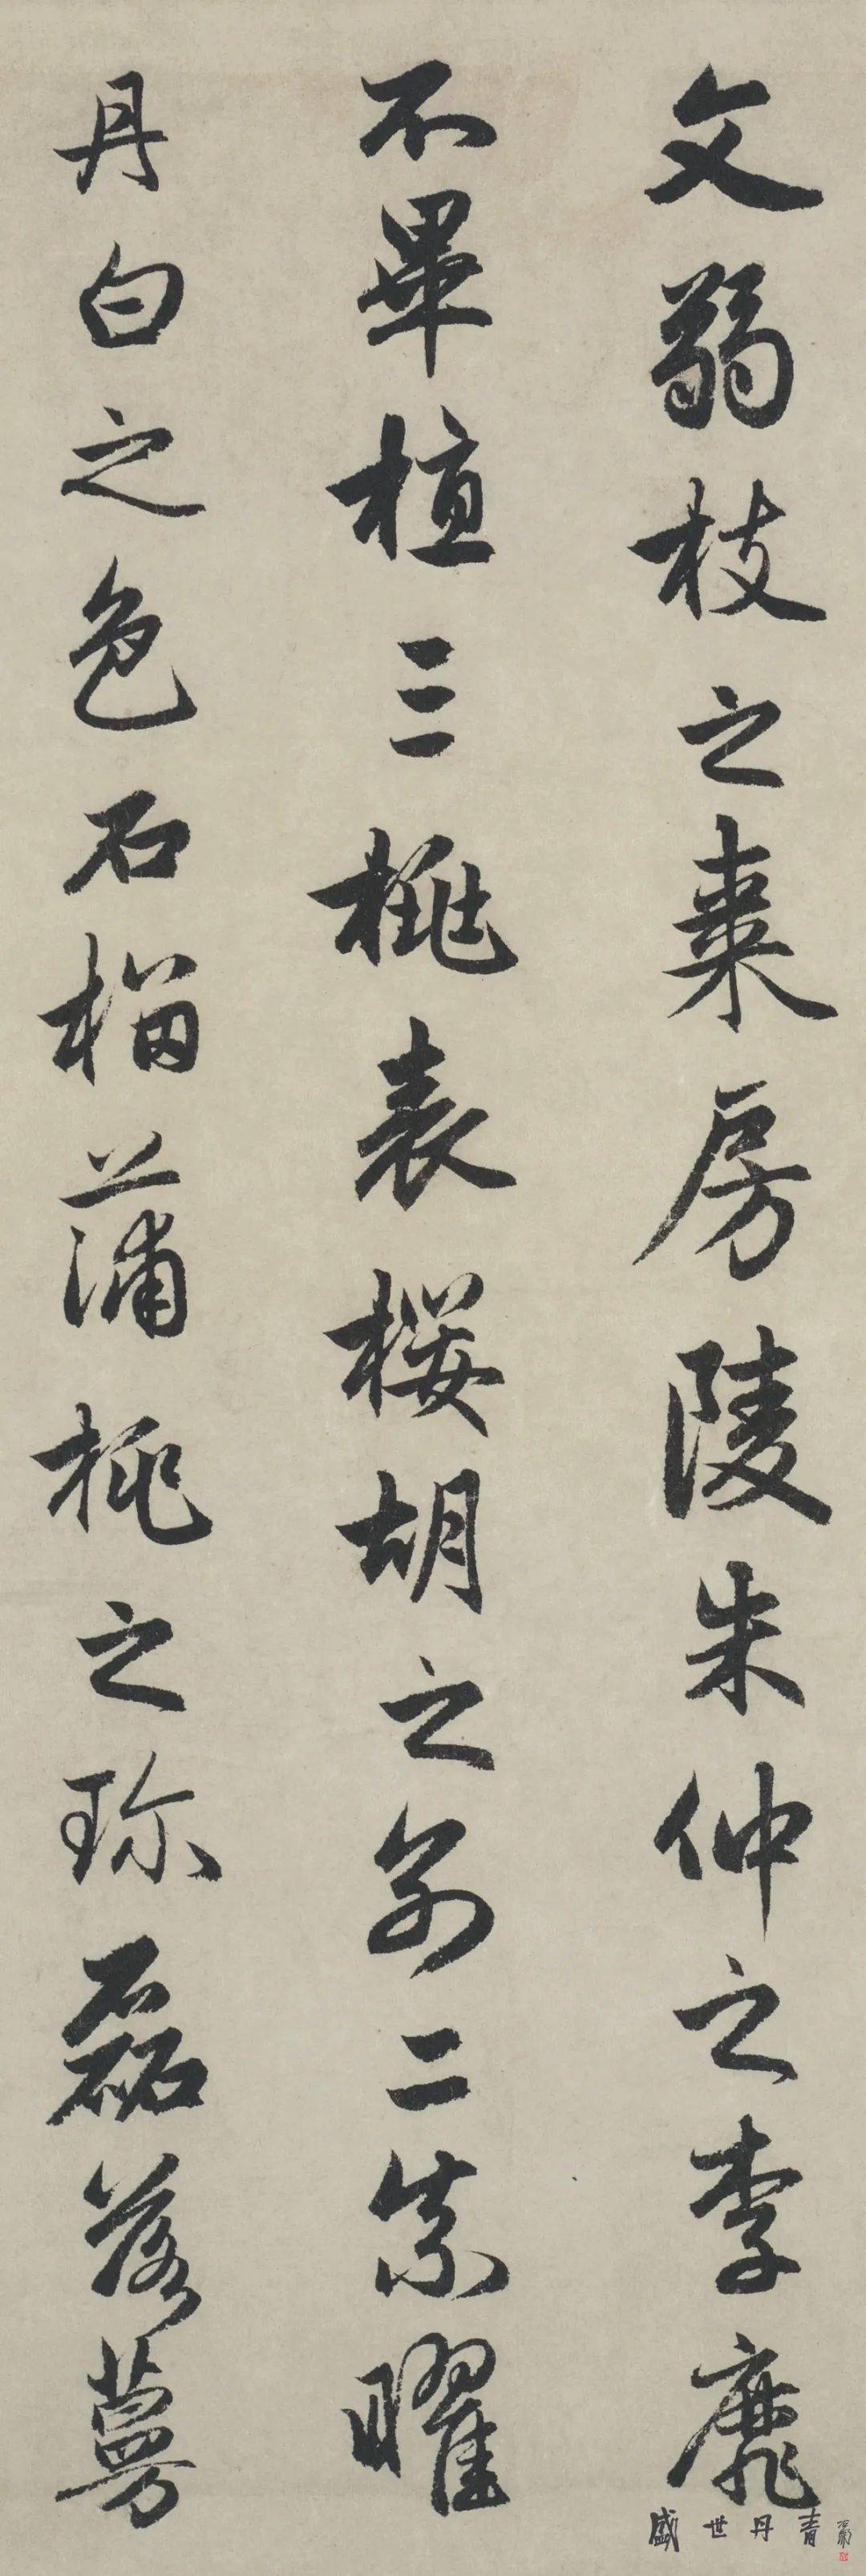 文弱枝之棗房陵朱仲之李靡
不畢植三桃表櫻胡之別二柰曜
丹白之色石榴蒲桃之珍磊落蔓
盛世丹青